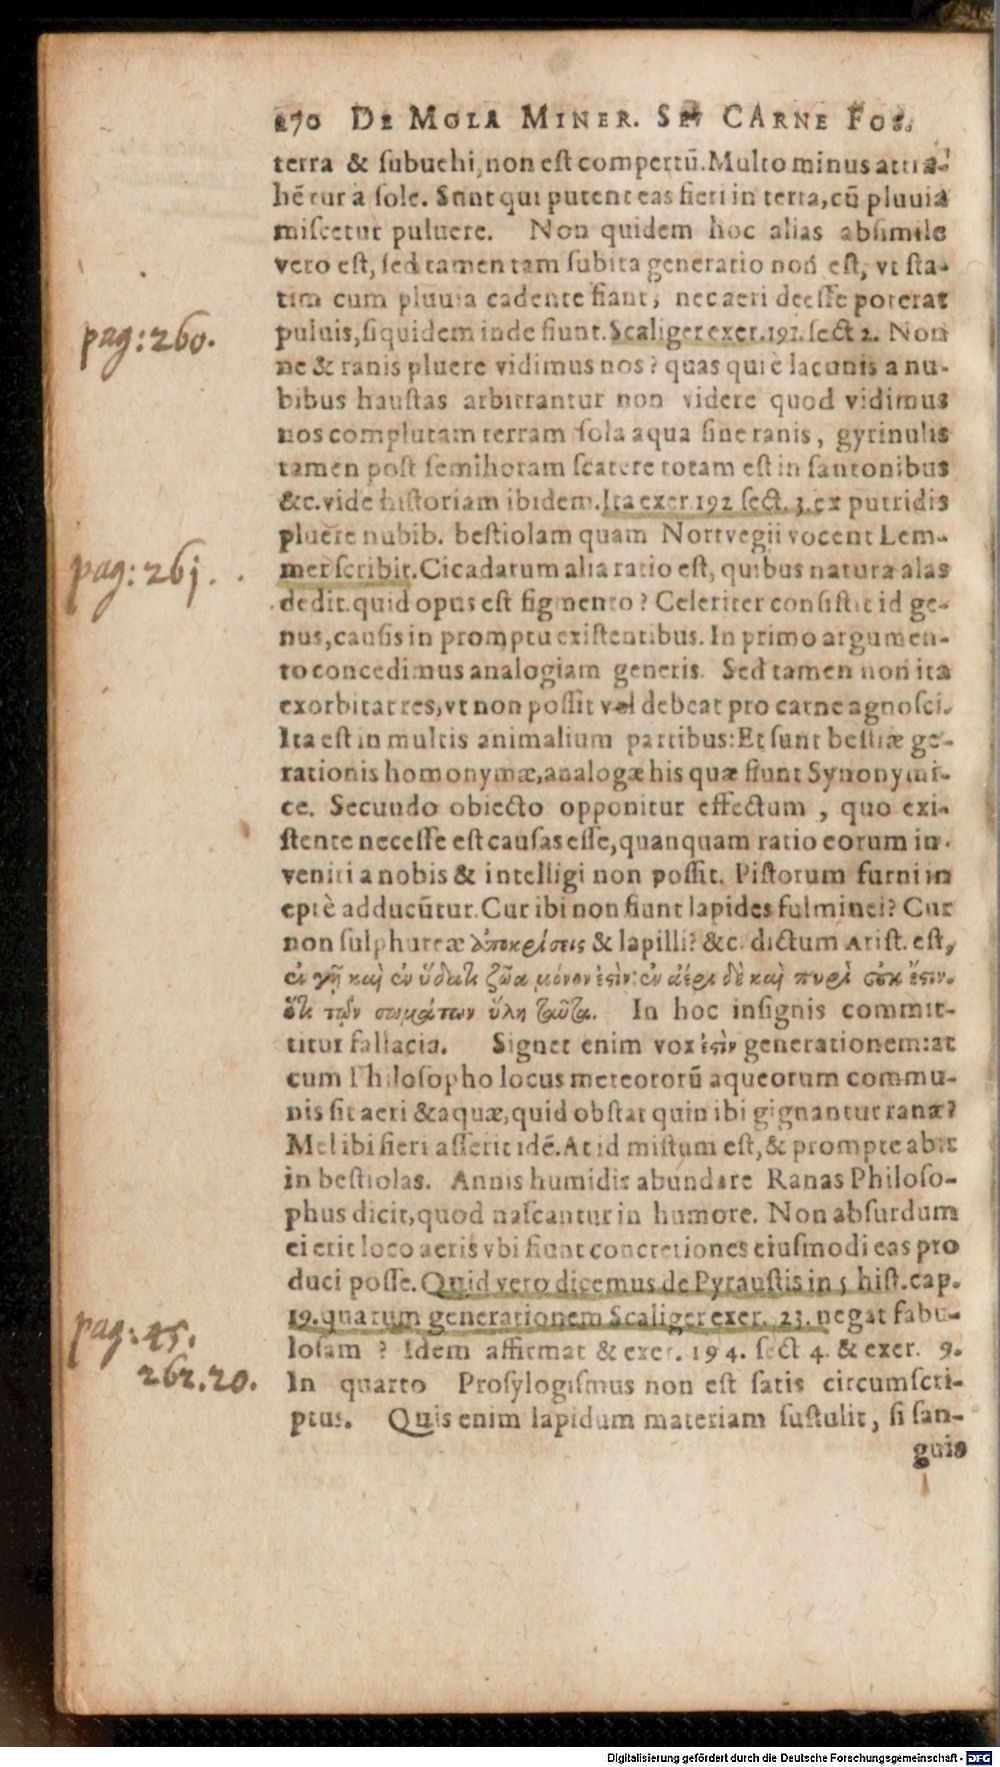 270 DE MOLA MINER. SEV CARNE FOS.
terra & subuehi, non est compertū. Multo minus attra-
hētur à sole. Sunt qui putent eas fieri in terra, cū pluuia
miscetur puluere. Non quidem hoc alias absimile
vero est, sed tamen tam subita generatio non est, vt sta-
tim cum pluuia cadente fiant, nec aeri deesse poterat
puluis, siquidem inde fiunt. Scaliger exer. 191. sect 2. Non
pag: 260.
ne & ranis pluere vidimus nos? quas qui è lacunis a nu-
bibus haustas arbitrantur non videre quod vidimus
nos complutam terram sola aqua sine ranis, gyrinulis
tamen post semihoram scatere totam est in santonibus
&c. vide historiam ibidem. Ita exer. 192 sect. 3. ex putridis
pluere nubib. bestiolam quam Nortvegii vocent Lem-
mer scribit. Cicadarum alia ratio est, quibus natura alas
pag: 261.
dedit. quid opus est figmento? Celeriter consistit id ge-
nus, causis in promptu existentibus. In primo argumen-
to concedimus analogiam generis. Sed tamen non ita
exorbitat res, vt non possit vel debeat pro carne agnosci.
Ita est in multis animalium partibus: Et sunt bestiæ ge-
rationis homonymæ, analogæ his quæ fiunt Synonymi-
ce. Secundo obiecto opponitur effectum, quo exi-
stente necesse est causas esse, quanquam ratio eorum in-
veniri a nobis & intelligi non possit. Pistorum furni in
eptè adducūtur. Cur ibi non fiunt lapides fulminei? Cur
non sulphureæ ἀποκρίσεις & lapilli? &c. dictum Arist. est,
ἐν γῇ καὶ ἐν ὕδατι ζῶα μόνον ἐστὶν: ἐν ἀέρι δὲ καὶ πυρὶ οὐκ ἔστιν.
ὅτι τῶν σωμάτων ὕλη ταῦτα. In hoc insignis commit-
titur fallacia. Signet enim vox ἐστὶν generationem: at
cum Philosopho locus meteororū aqueorum commu-
nis sit aeri & aquæ, quid obstat quin ibi gignantur ranæ?
Mel ibi fieri asserit idē. At id mistum est, & prompte abit
in bestiolas. Annis humidis abundare Ranas Philoso-
phus dicit, quod nascantur in humore. Non absurdum
ei erit loco aeris vbi fiunt concretiones eiusmodi eas pro
duci posse. Quid vero dicemus de Pyraustis in 5 hist. cap.
19. quarum generationem Scaliger exer. 23. negat fabu-
pag: 45.
losam? Idem affirmat & exer. 194. sect 4. & exer. 9.
262. 20.
In quarto Prosylogismus non est satis circumscri-
ptus. Quis enim lapidum materiam sustulit, si san-
guis
Digitalisierung gefördert durch die Deutsche Forschungsgemeinschaft - DFG